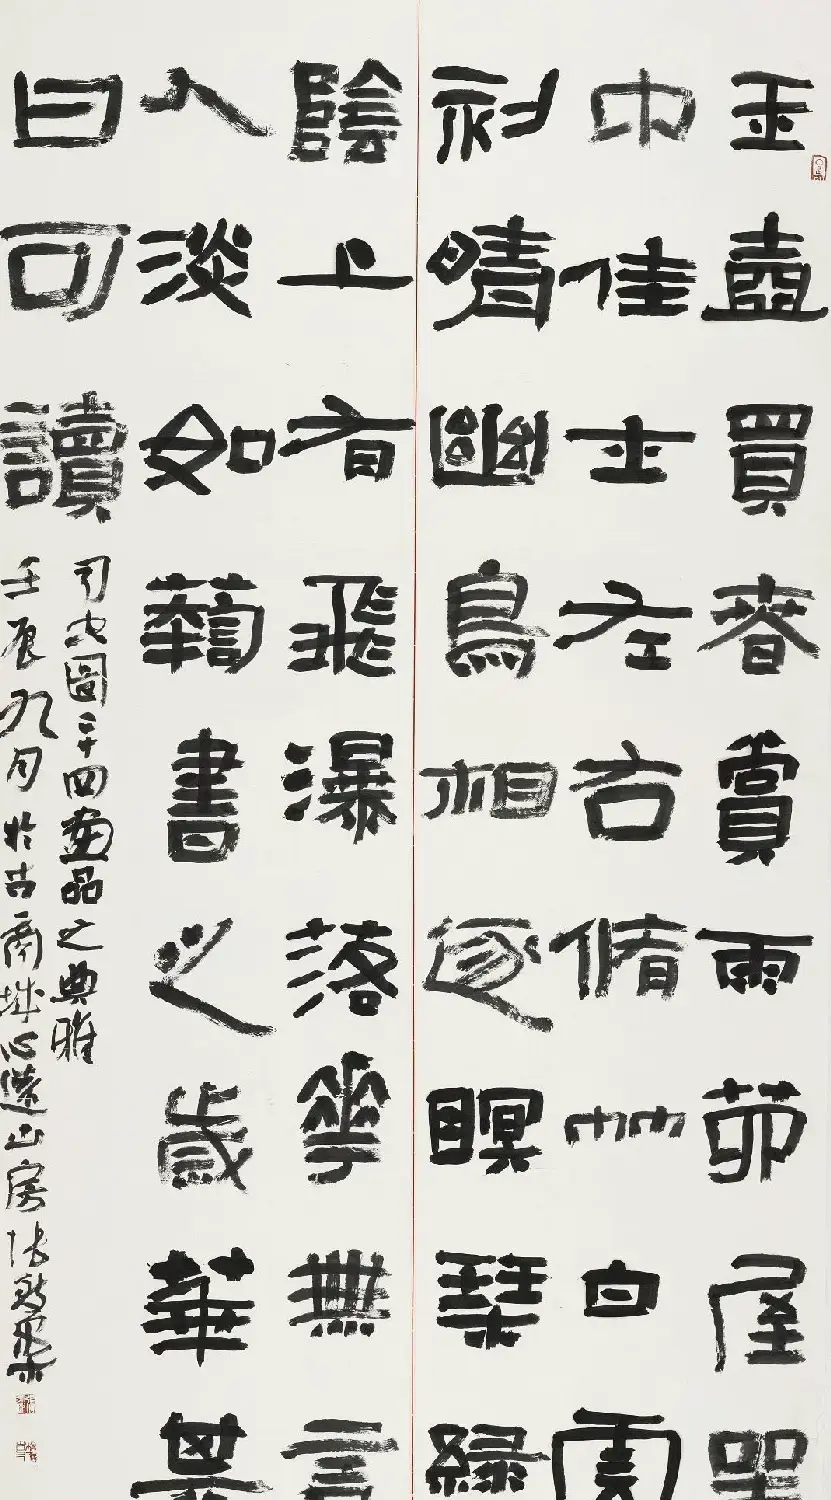 玉壺買春賞雨茆屋坐
中佳士左右脩竹白雲
初晴幽鳥相逐瞑琴緑
陰上有飛瀑落華無言
人淡如蘜書之歲華其
曰可讀
司空圖二十四画品之典雅
壬辰九月於古商城心遠山房張